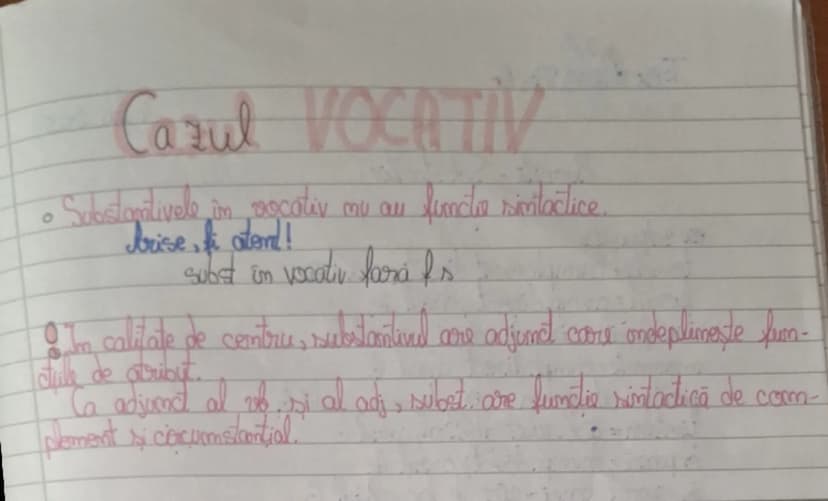 Cazul VOCATIV
Substantivele in vocativ nu au functie sintactice.
fi atent!
subst in vocativ fără fs
In calitate de centru, substantivul are adjunct care indeplineste func-
tiile de atribut.
Ca adjunct al vb. si al adj, subst. are functie sintactică de com-
plement si circumstantial.